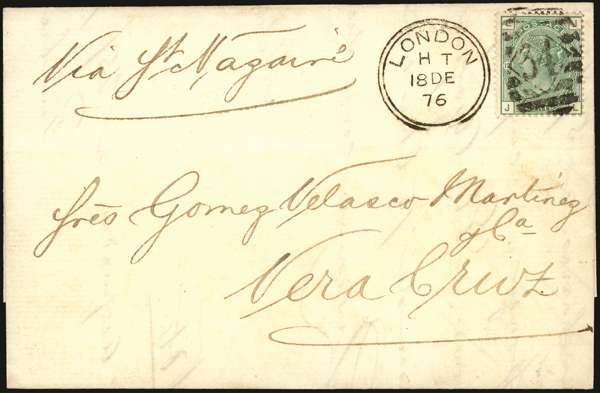 Via St Nazaire
LONDON
H T
18 DE
76
J
L
Sres Gomez Velasco Martinez
y Ca
Vera Cruz